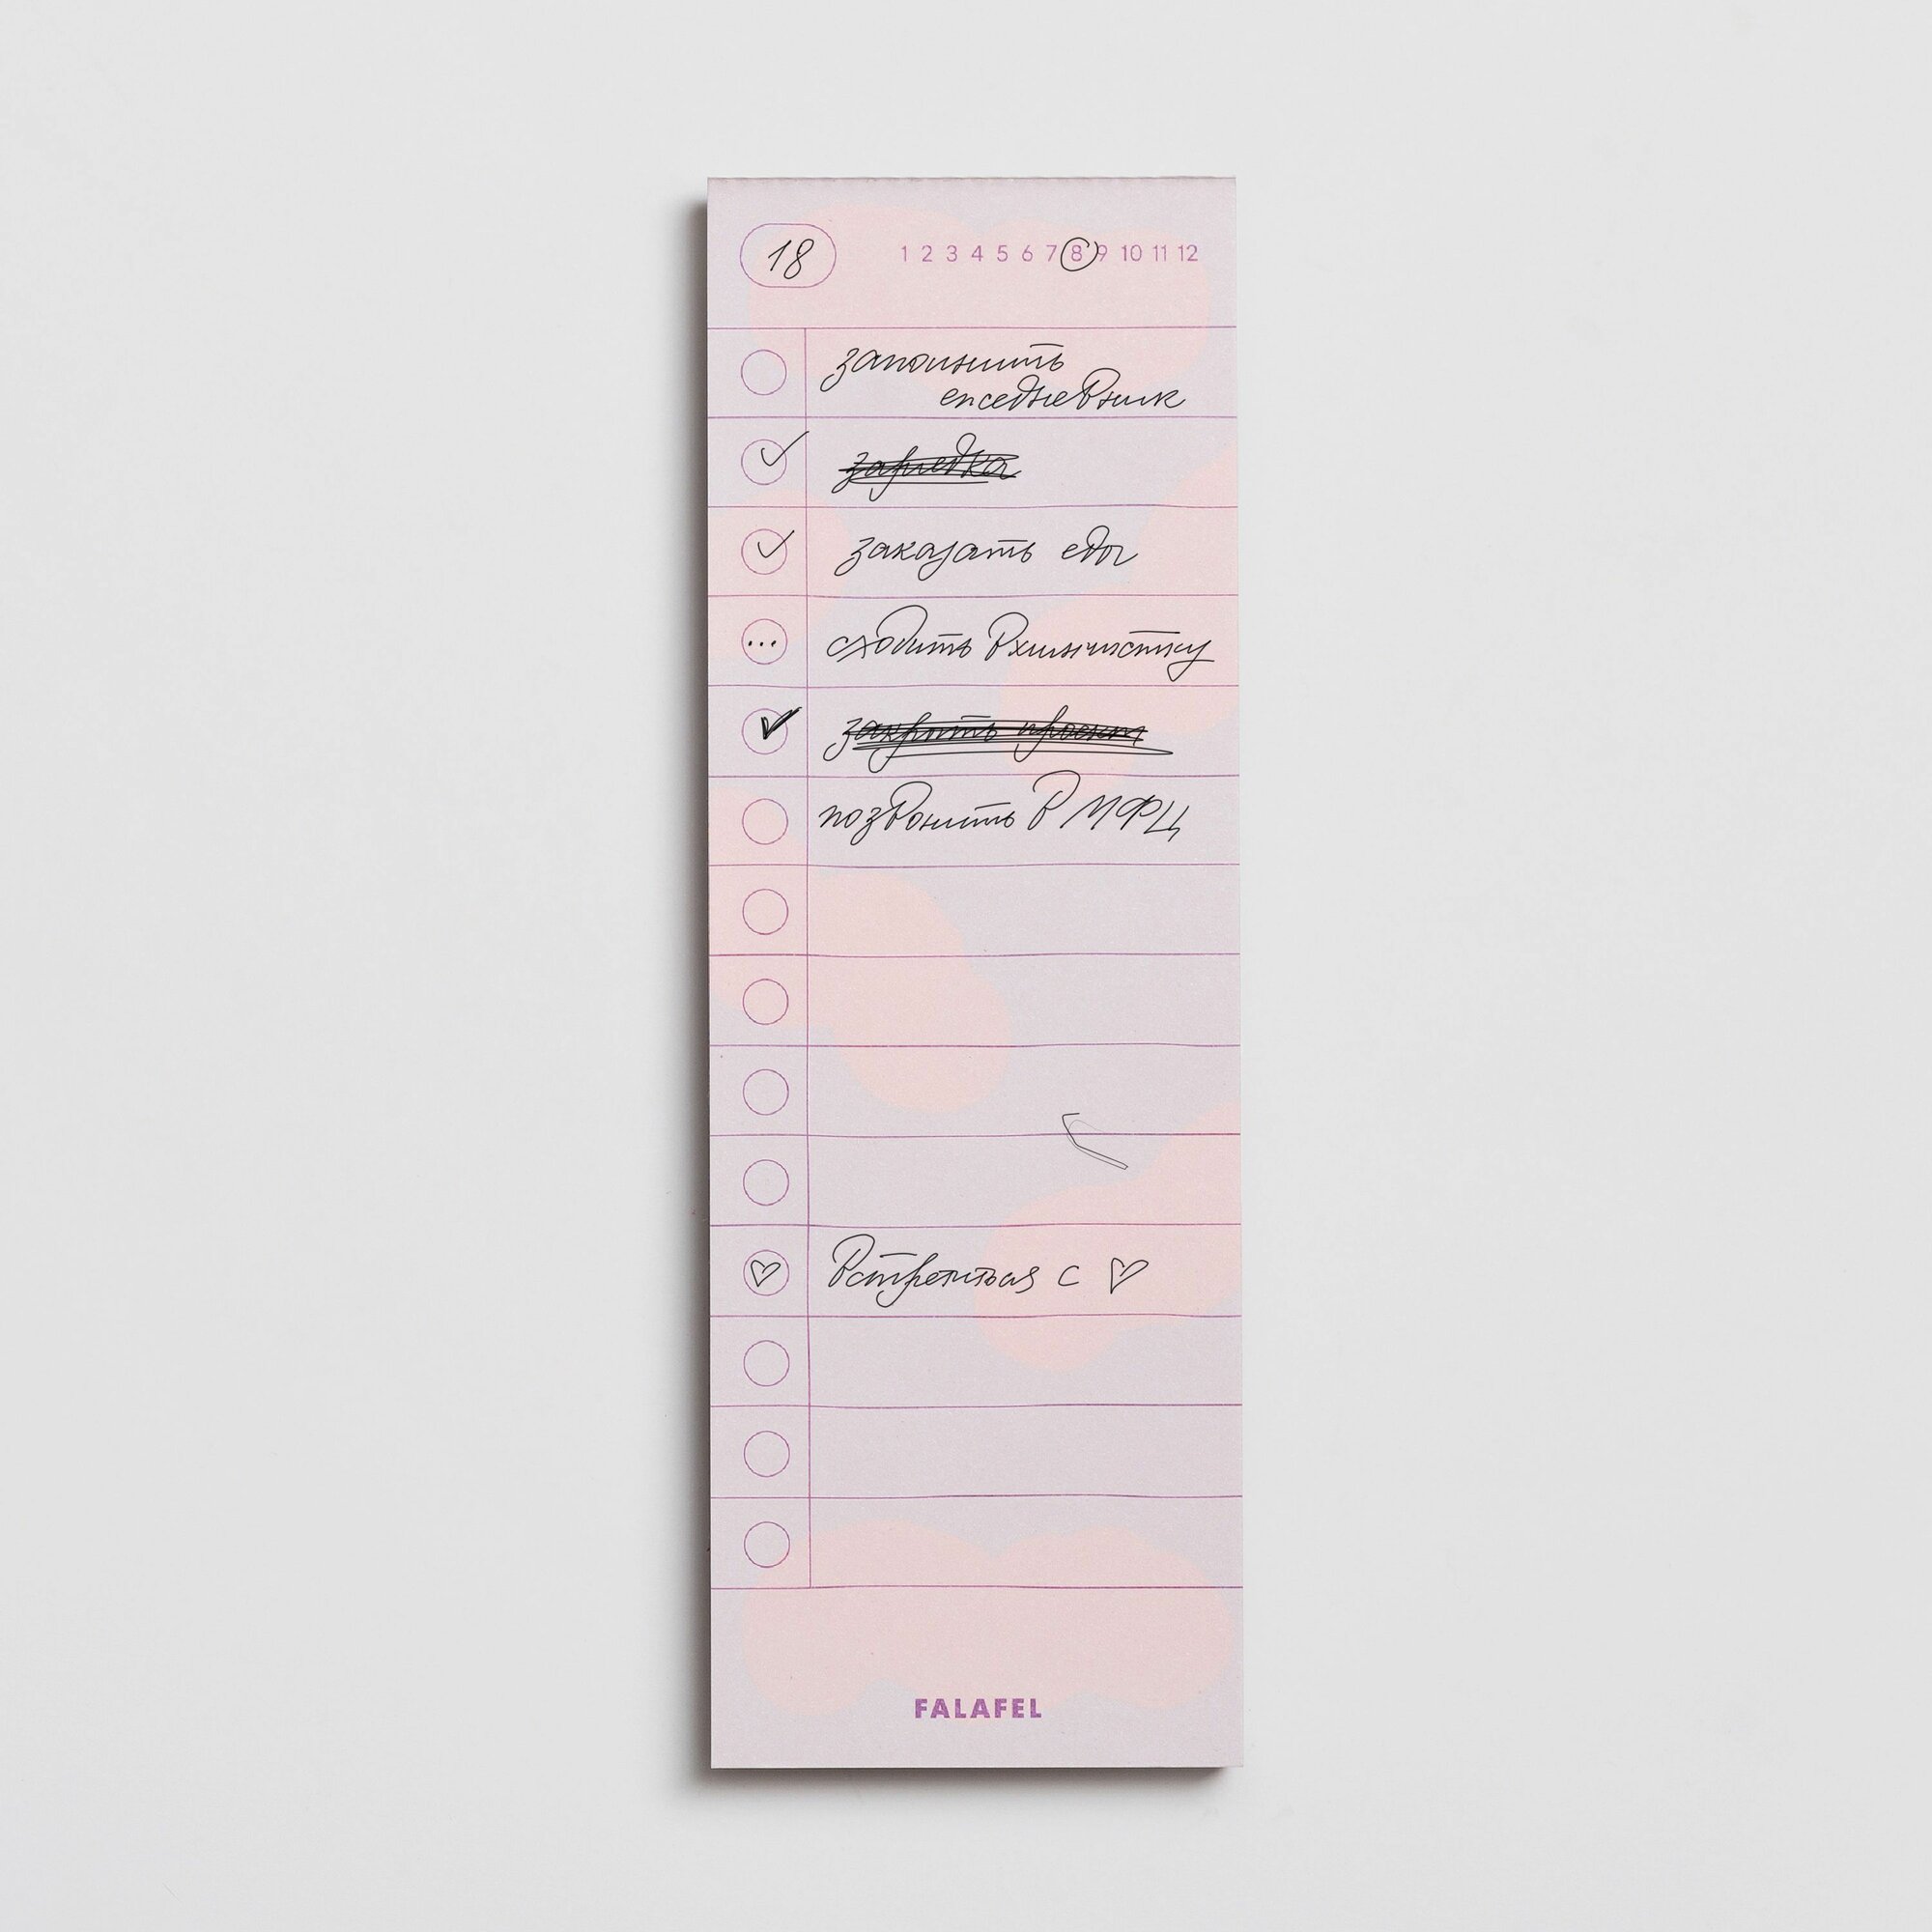 18 1 2 3 4 5 6 7 8 9 10 11 12
заполнить
ежедневник
зарядка
заказать еды
сходить в химчистку
закрыть проект
позвонить в МФЦ
встретиться с
FALAFEL